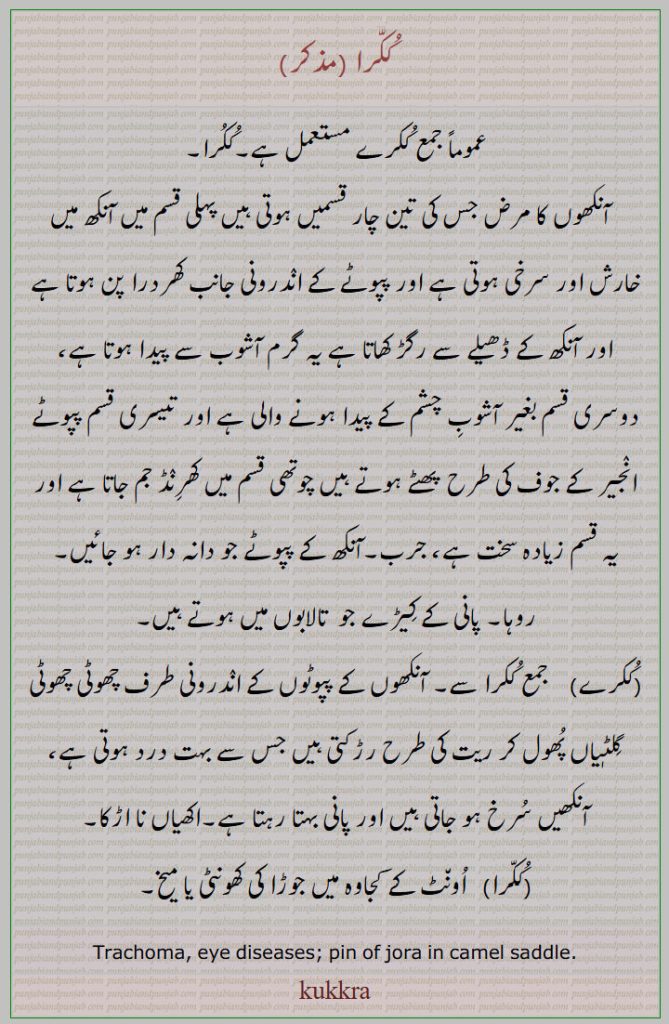 کُکّرا (مذکر)
عموماً جمع کُکرے مستعمل ہے۔ کُکُرا۔
آنکھوں کا مرض جس کی تین چار قسمیں ہوتی ہیں پہلی قسم میں آنکھ میں
خارش اور سرخی ہوتی ہے اور پپوٹے کے انْدرونی جانب کھردرا پن ہوتا ہے
اور آنکھ کے ڈھیلے سے رگڑ کھاتا ہے یہ گرم آشوب سے پیدا ہوتا ہے،
دوسری قسم بغیر آشوبِ چشم کے پیدا ہونے والی ہے اور تیسری قسم پپوٹے
انْجیر کے جوف کی طرح پھٹے ہوتے ہیں چوتھی قسم میں کھرِنْڈ جم جاتا ہے اور
یہ قسم زیادہ سخت ہے، جرب۔ آنکھ کے پپوٹے جو دانہ دار ہو جائیں۔
روہا۔ پانی کے کِیڑے جو تالابوں میں ہوتے ہیں۔
(کُکرے) جمع کُکرا سے۔ آنکھوں کے پپوٹوں کے انْدرونی طرف چھوٹی چھوٹی
گِلٹیاں پُھول کر ریت کی طرح رڑکتی ہیں جس سے بہت درد ہوتی ہے،
آنکھیں سُرخ ہو جاتی ہیں اور پانی بہتا رہتا ہے۔ اکھیاں نا اڑکا۔
(کُکّرا) اُونٹ کے کجاوہ میں جوڑا کی کھونٹی یا میخ۔
Trachoma, eye diseases; pin of jora in camel saddle.
kukkra